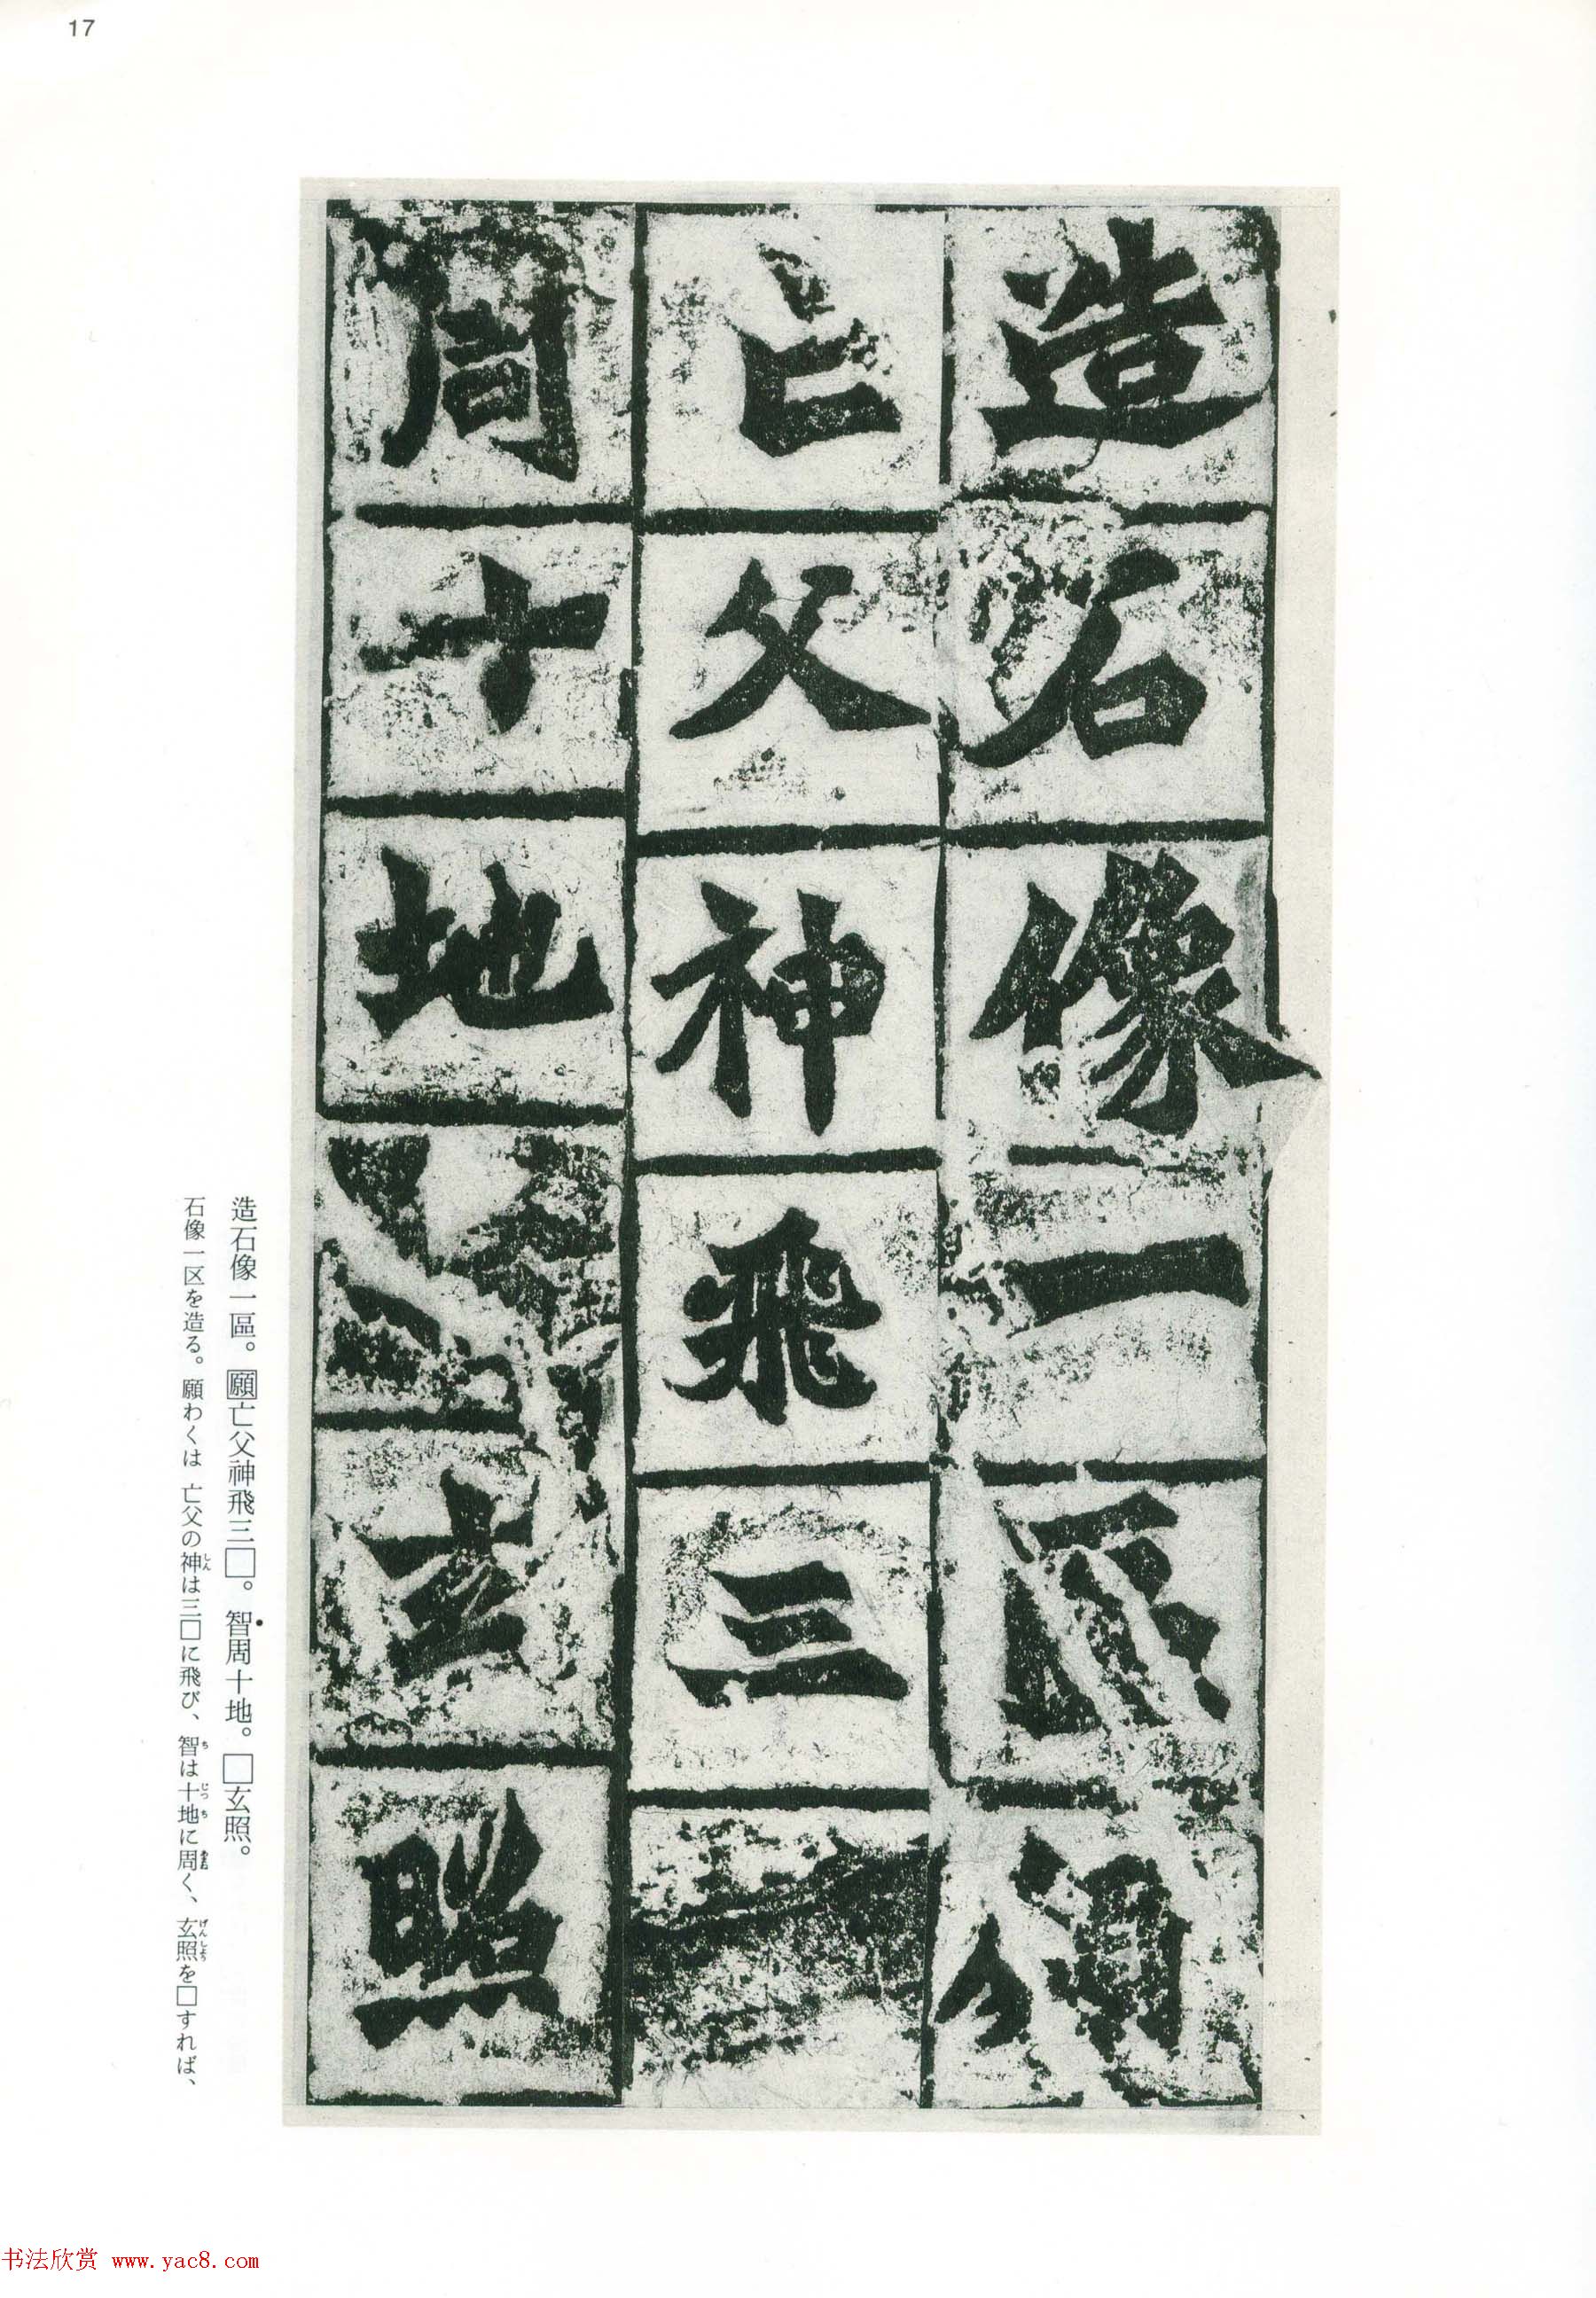 17
造石像一區願
亡父神飛三
周十地玄照
造石像一區。願亡父神飛三□。智周十地。□玄照。
石像一区を造る。願わくは 亡父の神は三□に飛び、智は十地に周く、玄照を□すれば、
しん
ち
じっち
あまね
げんしょう
书法欣赏 www.yac8.com